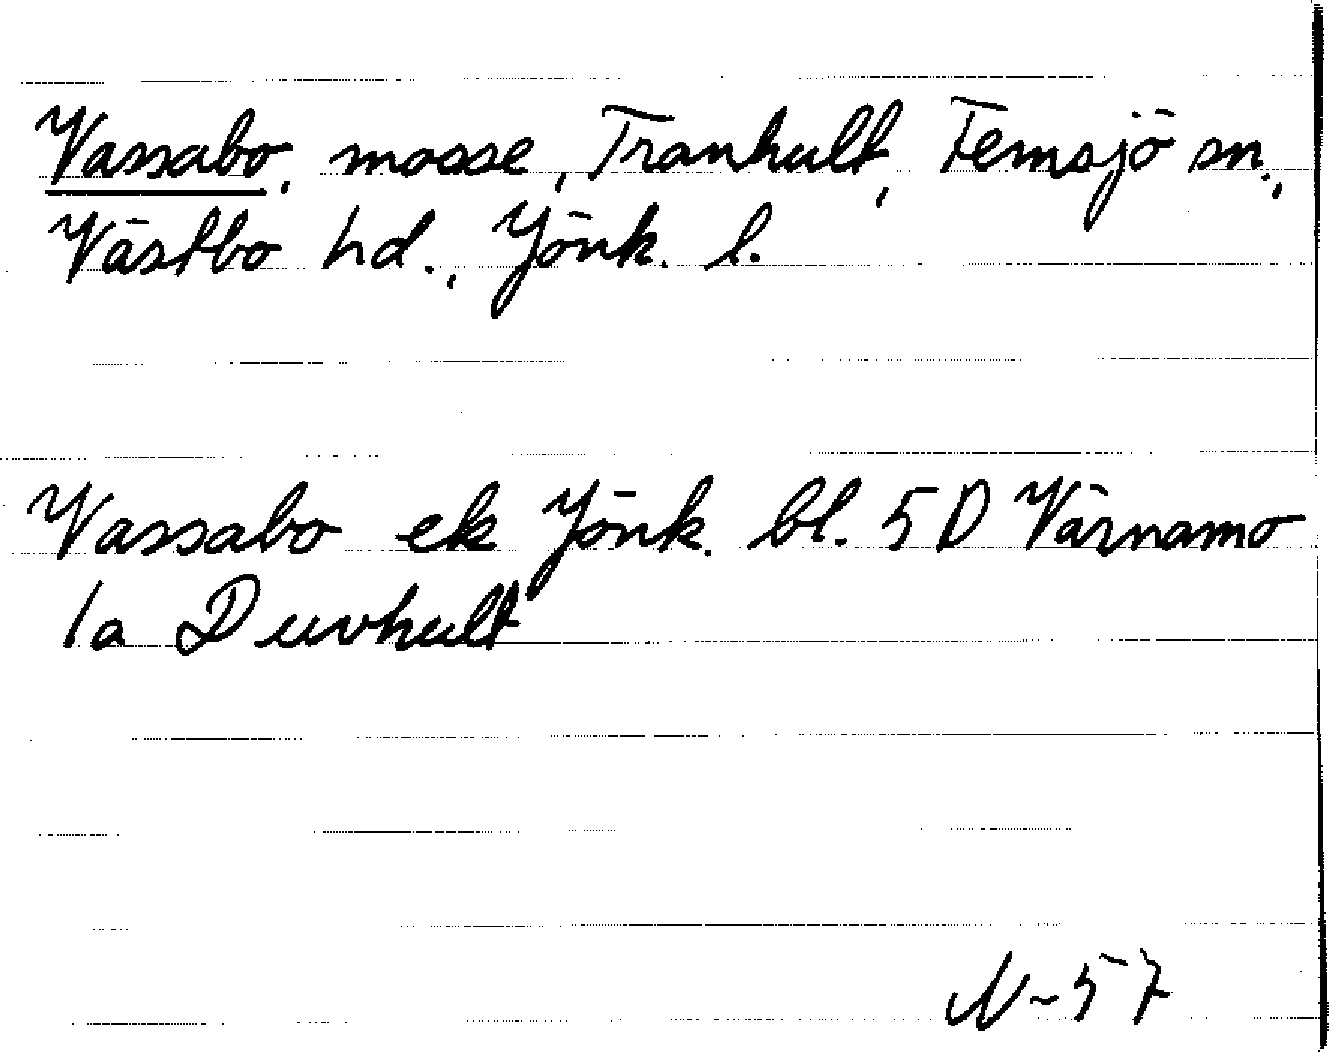 Vassabo, mosse, Tranhult, Femsjö sn.,
Västbo hd., Jönk. l.
Vassabo ek Jönk. bl. 5D Värnamo
1a Duvhult
N-57